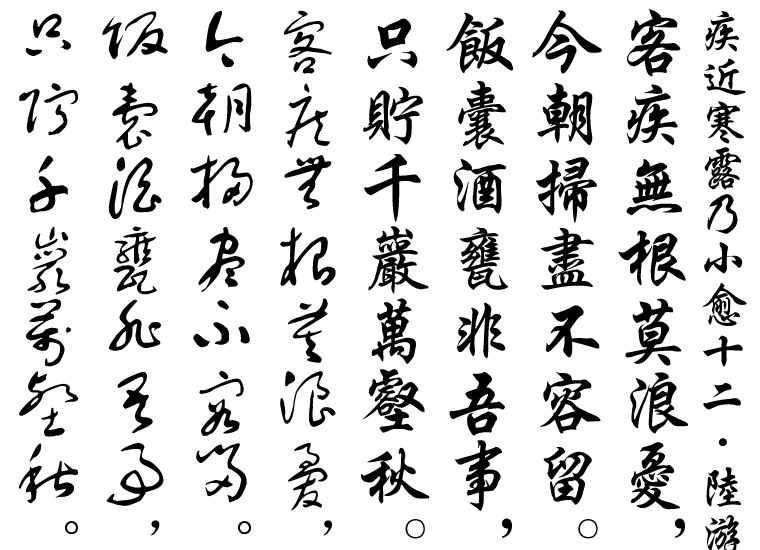 疾近寒露乃小愈十二·陸游
客疾無根莫浪憂，
今朝掃盡不容留。
飯囊酒甕非吾事，
只貯千巖萬壑秋。
客疾無根莫浪憂，
今朝掃盡不容留。
飯囊酒甕非吾事，
只貯千巖萬壑秋。